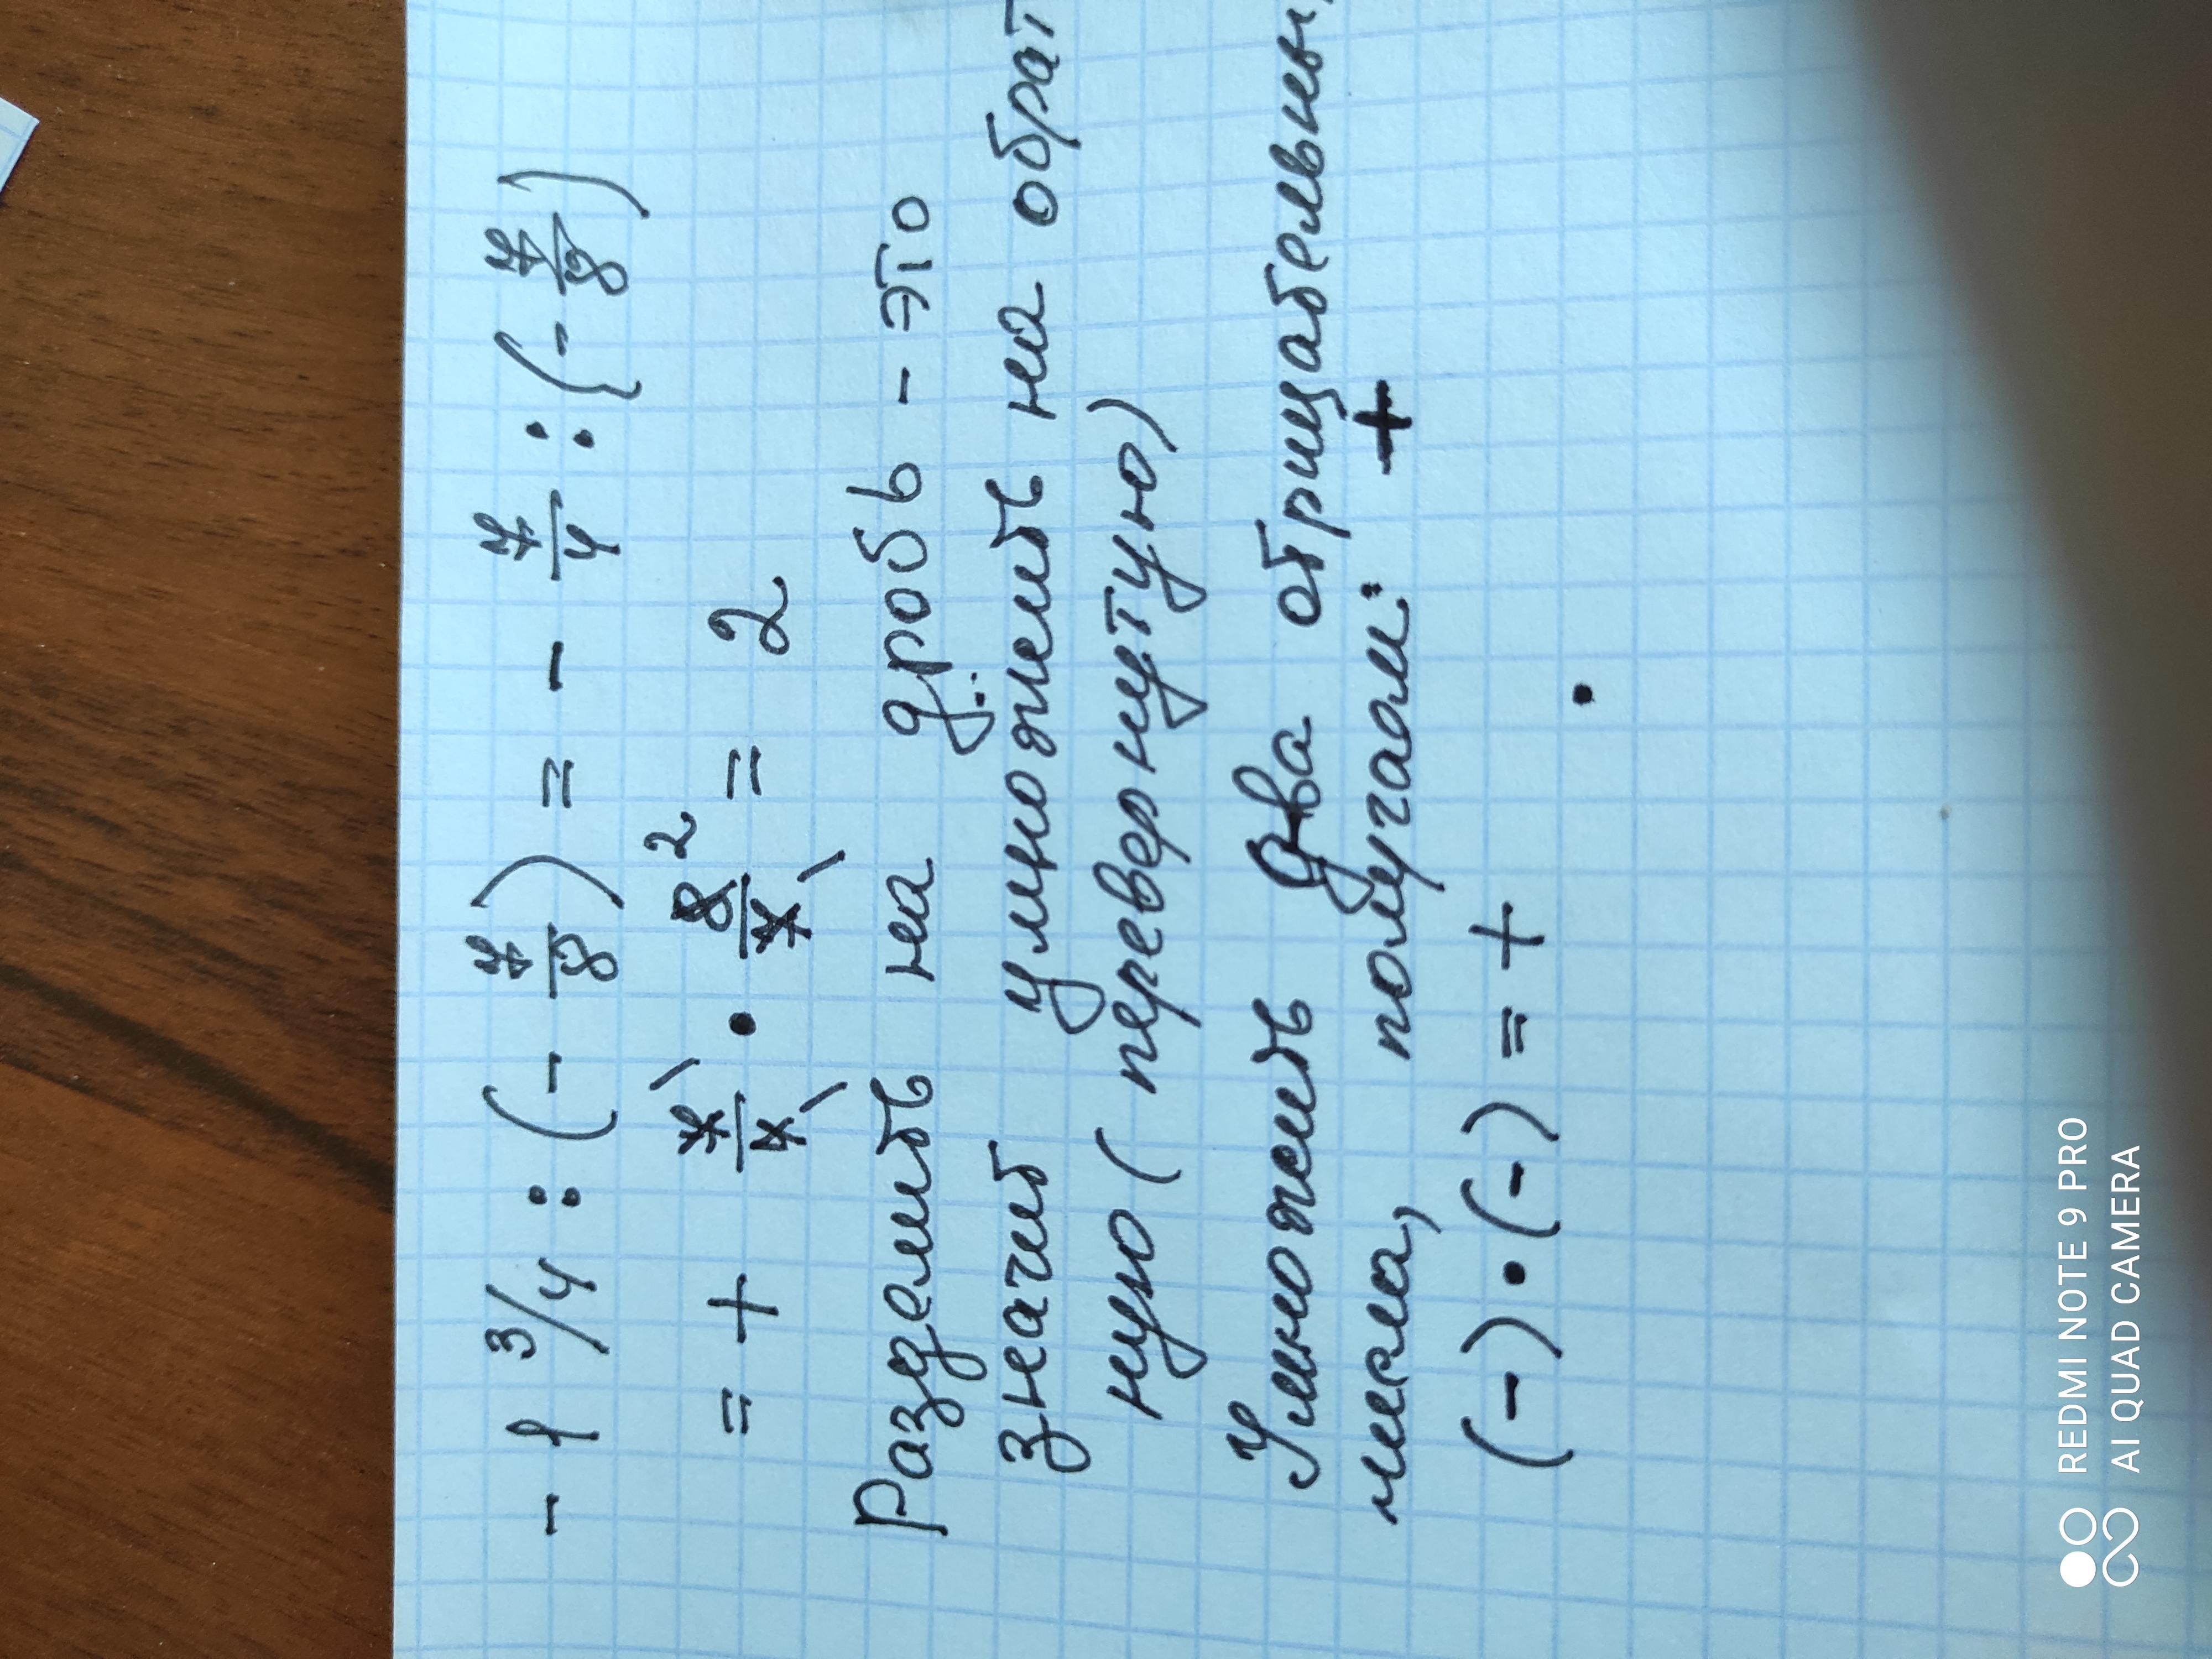 - 1 3/4 : (- 7/8) = - 7/4 : (- 7/8)
= + 7/4 · 8/7 2 = 2
Разделить на дробь - это
значит умножить на обрат
ную (перевернутую)
Умножить два отрицательных
числа, получаем: +
(-) · (-) = +
REDMI NOTE 9 PRO
AI QUAD CAMERA